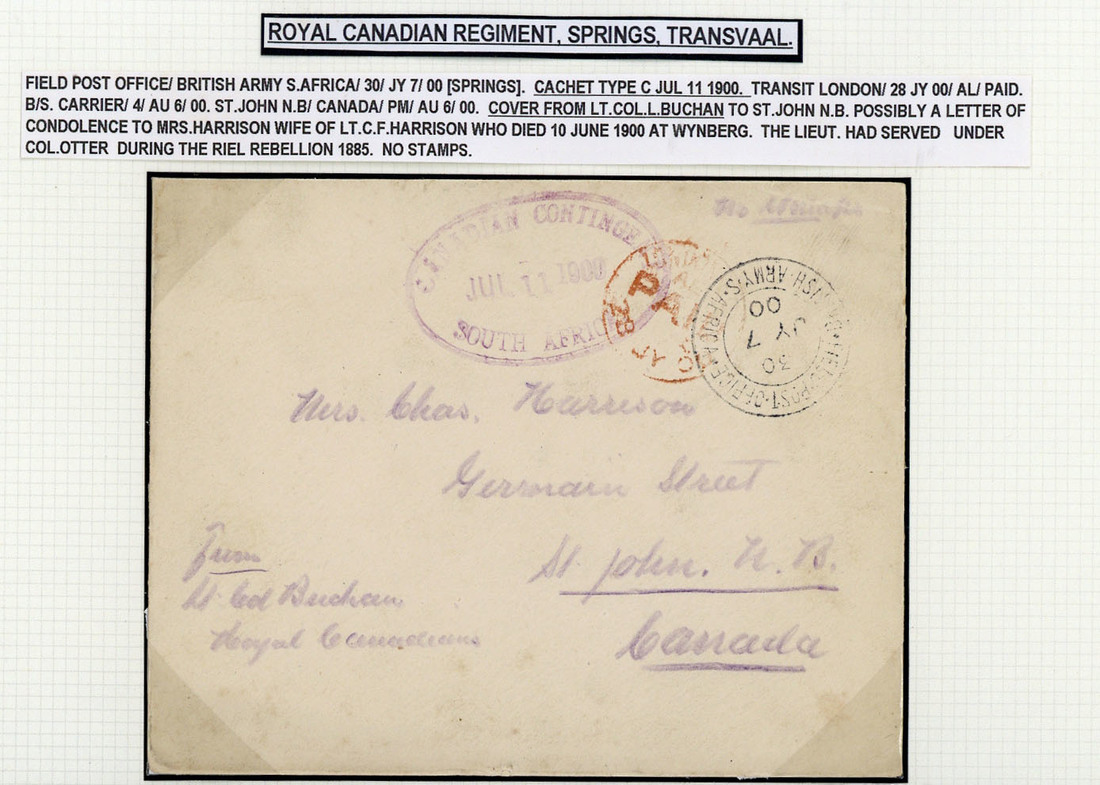 ROYAL CANADIAN REGIMENT, SPRINGS, TRANSVAAL.
FIELD POST OFFICE/ BRITISH ARMY S.AFRICA/ 30/ JY 7/ 00 [SPRINGS]. CACHET TYPE C JUL 11 1900. TRANSIT LONDON/ 28 JY 00/ AL/ PAID.
B/S. CARRIER/ 4/ AU 6/ 00. ST.JOHN N.B/ CANADA/ PM/ AU 6/ 00. COVER FROM LT.COL.L.BUCHAN TO ST.JOHN N.B. POSSIBLY A LETTER OF
CONDOLENCE TO MRS.HARRISON WIFE OF LT.C.F.HARRISON WHO DIED 10 JUNE 1900 AT WYNBERG. THE LIEUT. HAD SERVED UNDER
COL.OTTER DURING THE RIEL REBELLION 1885. NO STAMPS.
No Stamps
CANADIAN CONTINGE
JUL 11 1900
SOUTH AFRIC
LONDON
PAI
28 JY 00
FIELD·POST·OFFICE·
ISH·ARMY·S·AFRICA
30
JY 7
00
Mrs. Chas. Harrison
Germain Street
St. John. N.B.
Canada
From
Lt Col Buchan
Royal Canadians